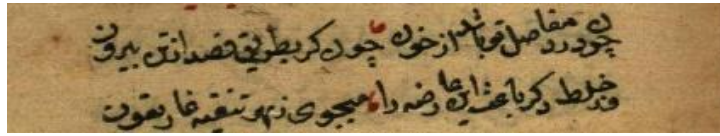 چون درد مفاصل تو باشد از خون چون کر بطریق فصد از تن بیرون
ور خلط دکر باعث این عارضه را میجوی زبهر تنقیه غاریقون